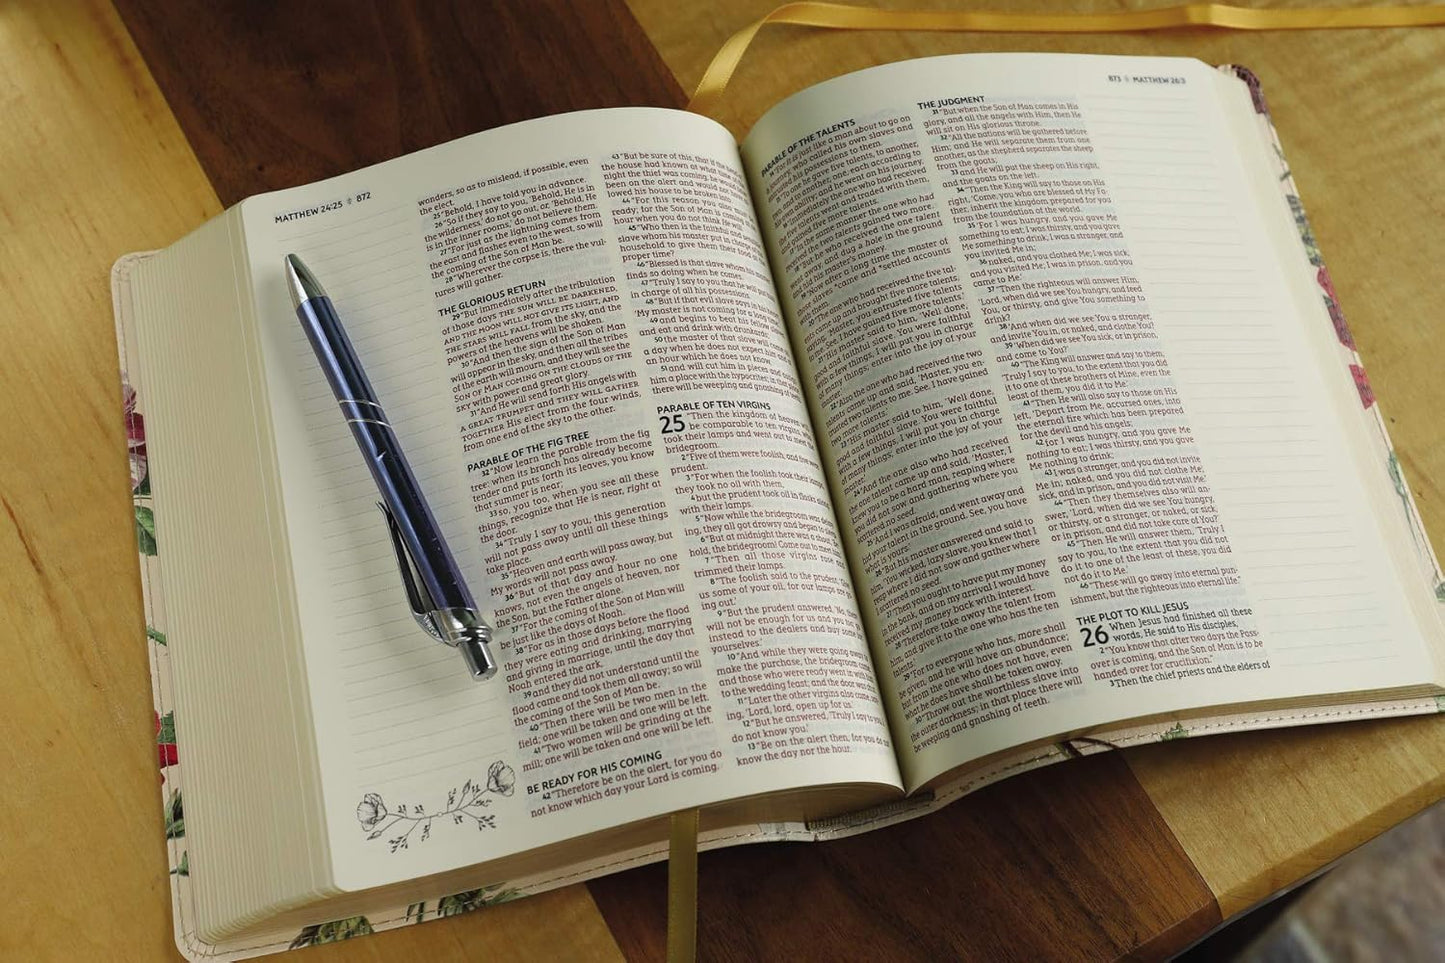 MATTHEW 24:25 872
wonders, so as to mislead, if possible, even
the elect.
25 "Behold, I have told you in advance.
26 "So if they say to you, 'Behold, He is in
the wilderness,' do not go out, or, 'Behold, He
is in the inner rooms,' do not believe them.
27 "For just as the lightning comes from
the east and flashes even to the west, so will
the coming of the Son of Man be.
28 "Wherever the corpse is, there the vul-
tures will gather.
THE GLORIOUS RETURN
29 "But immediately after the tribulation
of those days THE SUN WILL BE DARKENED,
AND THE MOON WILL NOT GIVE ITS LIGHT, AND
THE STARS WILL FALL from the sky, and the
powers of the heavens will be shaken.
30 "And then the sign of the Son of Man
will appear in the sky, and then all the tribes
of the earth will mourn, and they will see the
SON OF MAN COMING ON THE CLOUDS OF THE
SKY with power and great glory.
31 "And He will send forth His angels with
A GREAT TRUMPET and THEY WILL GATHER
TOGETHER His elect from the four winds,
from one end of the sky to the other.
PARABLE OF THE FIG TREE
32 "Now learn the parable from the fig
tree: when its branch has already become
tender and puts forth its leaves, you know
that summer is near;
33 so, you too, when you see all these
things, recognize that He is near, right at
the door.
34 "Truly I say to you, this generation
will not pass away until all these things
take place.
35 "Heaven and earth will pass away, but
My words will not pass away.
36 "But of that day and hour no one
knows, not even the angels of heaven, nor
the Son, but the Father alone.
37 "For the coming of the Son of Man will
be just like the days of Noah.
38 "For as in those days before the flood
they were eating and drinking, marrying
and giving in marriage, until the day that
Noah entered the ark,
39 and they did not understand until the
flood came and took them all away; so will
the coming of the Son of Man be.
40 "Then there will be two men in the
field; one will be taken and one will be left.
41 "Two women will be grinding at the
mill; one will be taken and one will be left.
BE READY FOR HIS COMING
42 "Therefore be on the alert, for you do
not know which day your Lord is coming.
43 "But be sure of this, that if the
the house had known at what time
night the thief was coming, he would
been on the alert and would not
lowed his house to be broken
44 "For this reason you also
ready; for the Son of Man is coming
hour when you do not think He
45 "Who then is the faithful and sensible
slave whom his master put in charge
household to give them their food
proper time?
46 "Blessed is that slave whom his
finds so doing when he comes.
47 "Truly I say to you that he will put
in charge of all his possessions.
48 "But if that evil slave says in his
'My master is not coming for a long
49 and begins to beat his fellow
and eat and drink with drunkards;
50 the master of that slave will come
a day when he does not expect him and
an hour which he does not know,
51 and will cut him in pieces and
him a place with the hypocrites; in that
there will be weeping and gnashing of
PARABLE OF TEN VIRGINS
25 "Then the kingdom of heaven
be comparable to ten virgins, who
took their lamps and went out to meet
bridegroom.
2 "Five of them were foolish, and five
prudent.
3 "For when the foolish took their
they took no oil with them,
4 but the prudent took oil in flasks
with their lamps.
5 "Now while the bridegroom was delay-
ing, they all got drowsy and began to
6 "But at midnight there was a shout,
hold, the bridegroom! Come out to meet
7 "Then all those virgins rose and
trimmed their lamps.
8 "The foolish said to the prudent, 'Give
us some of your oil, for our lamps are
ing out.'
9 "But the prudent answered, 'No,
will not be enough for us and you too;
instead to the dealers and buy some
yourselves.'
10 "And while they were going away
make the purchase, the bridegroom came,
and those who were ready went in with
to the wedding feast; and the door was
11 "Later the other virgins also came,
ing, 'Lord, lord, open up for us.'
12 "But he answered, 'Truly I say to you,
do not know you.'
13 "Be on the alert then, for you do
know the day nor the hour.
873 MATTHEW 26:3
PARABLE OF THE TALENTS
14 "For it is just like a man about to go on
a journey, who called his own slaves and
his possessions to them.
he gave five talents, to another,
another, one, each according to
and he went on his journey.
the one who had received
and traded with them,
more talents.
same manner the one who had
received the two talents gained two more.
he who received the one talent
away, and dug a hole in the ground
his master's money.
19 "Now after a long time the master of
slaves *came and *settled accounts
with them.
The one who had received the five tal-
came up and brought five more talents,
'Master, you entrusted five talents
See, I have gained five more talents.'
21 "His master said to him, 'Well done,
good and faithful slave. You were faithful
with a few things, I will put you in charge
of many things; enter into the joy of your
master.'
22 "Also the one who had received the two
talents came up and said, 'Master, you en-
trusted two talents to me. See, I have gained
two more talents.'
23 "His master said to him, 'Well done,
good and faithful slave. You were faithful
with a few things, I will put you in charge
of many things; enter into the joy of your
master.'
24 "And the one also who had received
the one talent came up and said, 'Master, I
knew you to be a hard man, reaping where
you did not sow and gathering where you
scattered no seed.
25 'And I was afraid, and went away and
hid your talent in the ground. See, you have
what is yours.'
26 "But his master answered and said to
him, 'You wicked, lazy slave, you knew that I
reap where I did not sow and gather where
I scattered no seed.
27 'Then you ought to have put my money
in the bank, and on my arrival I would have
received my money back with interest.
28 'Therefore take away the talent from
him, and give it to the one who has the ten
talents.'
29 "For to everyone who has, more shall
be given, and he will have an abundance;
but from the one who does not have, even
what he does have shall be taken away.
30 "Throw out the worthless slave into
the outer darkness; in that place there will
be weeping and gnashing of teeth.
THE JUDGMENT
31 "But when the Son of Man comes in His
glory, and all the angels with Him, then He
will sit on His glorious throne.
32 "All the nations will be gathered before
Him; and He will separate them from one
another, as the shepherd separates the sheep
from the goats;
33 and He will put the sheep on His right,
and the goats on the left.
34 "Then the King will say to those on His
right, 'Come, you who are blessed of My Fa-
ther, inherit the kingdom prepared for you
from the foundation of the world.
35 'For I was hungry, and you gave Me
something to eat; I was thirsty, and you gave
Me something to drink; I was a stranger, and
you invited Me in;
36 naked, and you clothed Me; I was sick,
and you visited Me; I was in prison, and you
came to Me.'
37 "Then the righteous will answer Him,
'Lord, when did we see You hungry, and feed
You, or thirsty, and give You something to
drink?
38 'And when did we see You a stranger,
and invite You in, or naked, and clothe You?
39 'When did we see You sick, or in prison,
and come to You?'
40 "The King will answer and say to them,
'Truly I say to you, to the extent that you did
it to one of these brothers of Mine, even the
least of them, you did it to Me.'
41 "Then He will also say to those on His
left, 'Depart from Me, accursed ones, into
the eternal fire which has been prepared
for the devil and his angels;
42 for I was hungry, and you gave Me
nothing to eat; I was thirsty, and you gave
Me nothing to drink;
43 I was a stranger, and you did not invite
Me in; naked, and you did not clothe Me;
sick, and in prison, and you did not visit Me.'
44 "Then they themselves also will an-
swer, 'Lord, when did we see You hungry,
or thirsty, or a stranger, or naked, or sick,
or in prison, and did not take care of You?'
45 "Then He will answer them, 'Truly I
say to you, to the extent that you did not
do it to one of the least of these, you did
not do it to Me.'
46 "These will go away into eternal pun-
ishment, but the righteous into eternal life."
THE PLOT TO KILL JESUS
26 When Jesus had finished all these
words, He said to His disciples,
2 "You know that after two days the Pass-
over is coming, and the Son of Man is to be
handed over for crucifixion."
3 Then the chief priests and the elders of